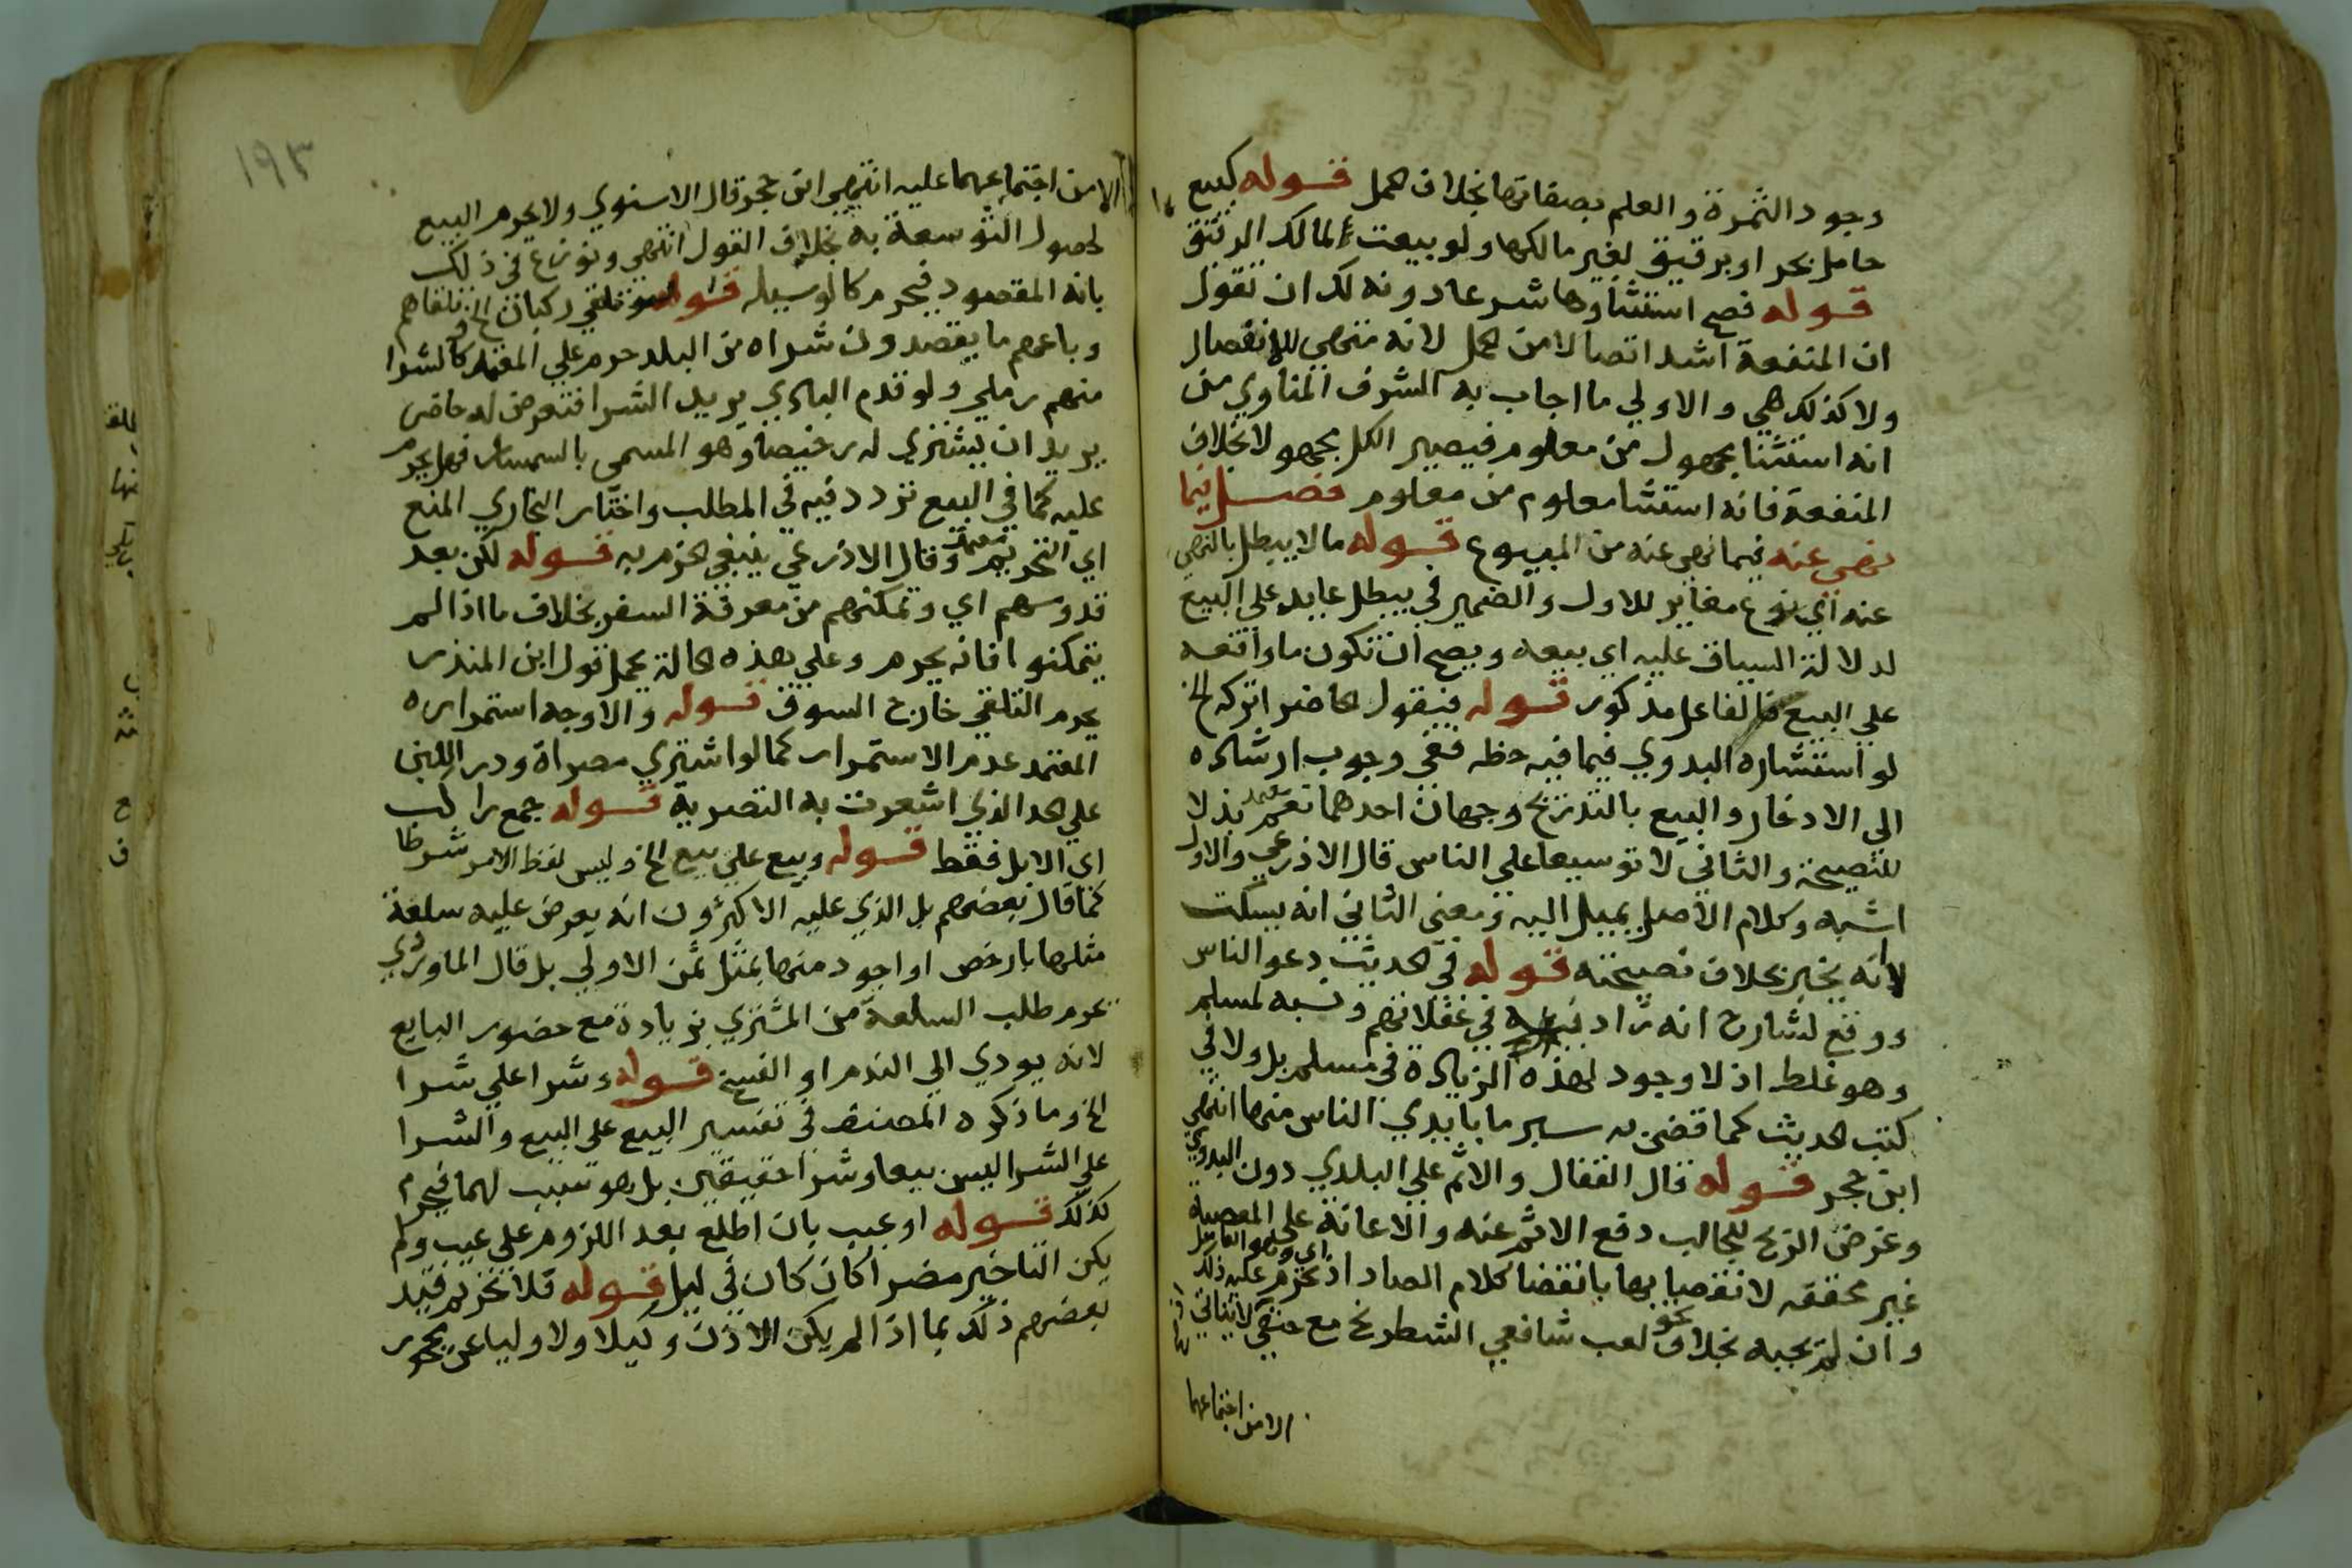 وجود الثمرة والعلم بصفاتها بخلاف الحمل قوله كبيع
حامل بحر او برقيق لغير مالكها ولو بيعت لمالك الرقيق
قوله فصح استثناوها شرعا دونه لك ان تقول
ان المنفعة اشد اتصالا من الحمل لانه منهي للانفصال
ولا كذلك هي والاولي ما اجاب به الشرف المناوي من
انه استثنا مجهول من معلوم فيصير الكل مجهولا بخلاف
المنفعة فانه استثنا معلوم من معلوم فصل فيما
نهي عنه فيما نهي عنه من البيوع قوله ما لا يبطل بالنهي
عنه اي نوع مغاير للاول والضمير في يبطل عايد علي البيع
لدلالة السياق عليه اي بيعه ويصح ان تكون ما واقعة
علي البيع فالفاعل مذكور قوله فيقول الحاضر اتركه الخ
لو استشاره البدوي فيما فيه حظه ففي وجوب ارشاده
الى الادخار والبيع بالتدريج وجهان احدهما نعم معتمد بذلا
للنصيحة والثاني لا توسيعا علي الناس قال الاذرعي والاول
اشبه وكلام الاصل يميل اليه ومعنى الثاني انه يسكت
لا انه يخبر بخلاف نصيحته قوله في الحديث دعو الناس
ووقع لشارح انه زاد فيه في غفلاتهم ونسبه لمسلم
وهو غلط اذ لا وجود لهذه الزيادة في مسلم بل ولا في
كتب الحديث كما قضى به سبر ما بايدي الناس منها انتهي
ابن حجر قوله قال القفال والاثم علي البلدي دون البدوي
وغرض الربح للجالب دفع الاثم عنه والاعانة على المعصية
غير محققه لانقضايها بانقضا كلام الصاد اذ تحرم اي وهو القايل عليه ذلك
وان لم يجبه بخلاف نحو لعب شافعي الشطرنج مع حنفي لا يتاتي
الا من اجتماعهما
١٩٣
الا من اجتماعهما عليه انتهي ابن حجر قال الاسنوي ولا يحرم البيع
لحصول التوسعة به بخلاف القول انتهي ونوزع في ذلك
بانه المقصود فيحرم كالوسيله قوله وتلقي ركبان الخ ولو تلقاهم
وباعهم ما يقصدون شراه من البلد حرم علي المعتمد كالشرا
منهم رملي ولو قدم البادي يريد الشرا فتعرض له حاضر
يريد ان يشتري له رخيصا وهو المسمى بالسمسار فهل يحرم
عليه كما في البيع تردد فيه في المطلب واختار البخاري المنع
اي التحريم معتمد وقال الاذرعي ينبغي الجزم به قوله لكن بعد
قدومهم اي وتمكنهم من معرفة السعر بخلاف ما اذا لم
يتمكنوا فانه يحرم وعلي هذه الحالة يحمل قول ابن المنذر
يحرم التلقي خارج السوق قوله والاوجه استمراره
المعتمد عدم الاستمرار كما لو اشتري مصراة ودر اللبن
علي الحد الذي اشعرت به التصرية قوله جمع راكب
اي الابل فقط قوله وبيع علي بيع الخ وليس لفظ الامر شرطا
كما قال بعضهم بل الذي عليه الاكثرون انه يعرض عليه سلعة
مثلها بارخص او اجود منها بمثل ثمن الاولي بل قال الماوردي
يحرم طلب السلعة من المشتري بزيادة مع حضور البايع
لانه يودي الي الندم او الفسخ قوله وشرا علي شرا
الخ وما ذكره المصنف في تفسير البيع على البيع والشرا
علي الشرا ليس بيعا وشرا حقيقيين بل هو تسبب لهما فيحرم
كذلك قوله او عيب بان اطلع بعد اللزوم علي عيب ولم
يكن التاخير مضرا كان كان في ليل قوله فلا تحريم قيد
بعضهم ذلك بما اذا لم يكن الاذن وكيلا ولا وليا عن محجور